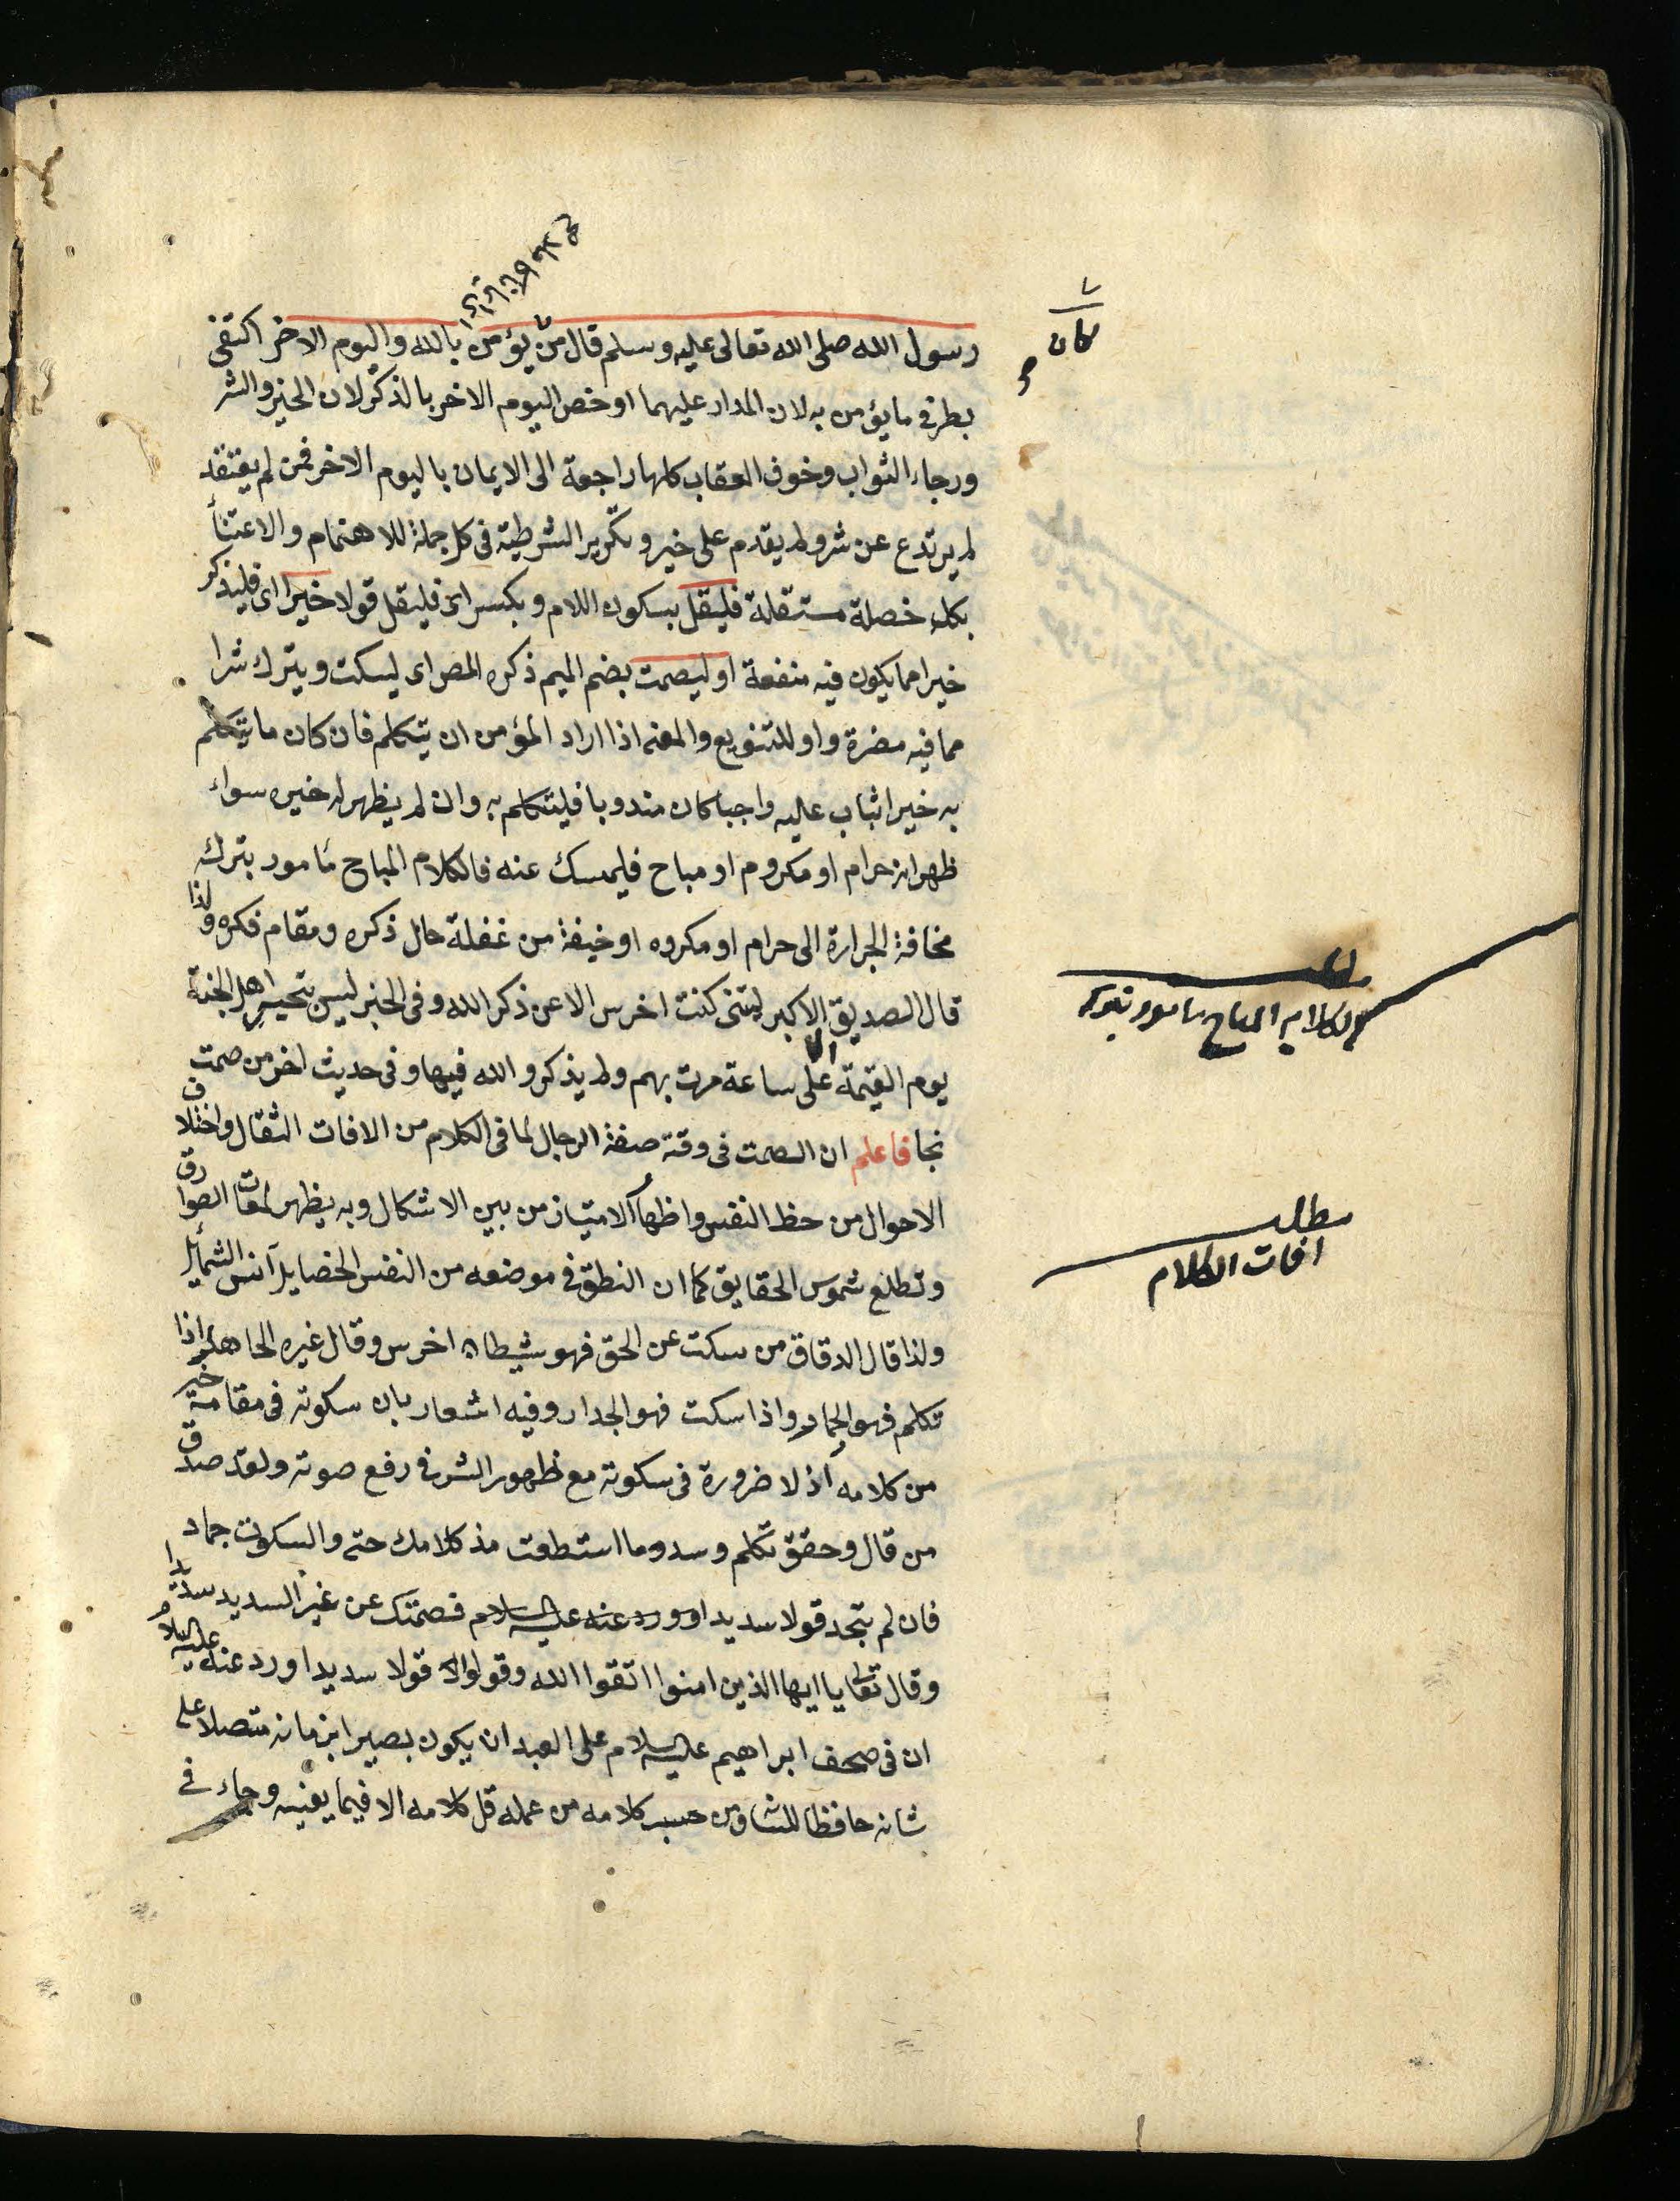 رسول الله صلى الله تعالى عليه وسلم قال من يؤمن بالله واليوم الاخر اكتفى
كان
بطرفى ما يؤمن به لان المدار عليهما او خص اليوم الاخر بالذكر لان الخير والشر
ورجاء الثواب وخوف العقاب كلها راجعة الى الايمان باليوم الاخر فمن لم يعتقد
لم يرتدع عن شر ولم يقدم على خير وتكرير الشرطية فى كل جملة للاهتمام والاعتنأ
بكل خصلة مستقلة فليقل بسكون اللام وبكسر اى فليقل قولا خيرا اى فليذكر
خيرا مما يكون فيه منفعة او ليصمت بضم الميم ذكره المص اى ليسكت ويترك شرا
مما فيه مضرة واو للتنويع والمعنى اذا اراد المؤمن ان يتكلم فان كان ما يتكلم
به خيرا يثاب عليه واجبا كان مندوبا فليتكلم به وان لم يظهر له خيره سواء
ظهر انه حرام او مكروه او مباح فليمسك عنه فالكلام المباح مأمور بتركه
مخافة الجرارة الى حرام او مكروه او خيفة من غفلة حال ذكره ومقام فكره ولذا
قال الصديق الاكبر ليتنى كنت اخرس الا عن ذكر الله وفى الخبر ليس يتحسر اهل الجنة
الكلام المباح مامور بتركه
يوم القيمة الا على ساعة مرت بهم ولم يذكروا الله فيها وفى حديث اخر من صمت
نجا فاعلم ان الصمت فى وقته صفة الرجال لما فى الكلام من الافات الثقال واختلاف
الاحوال من حظ النفس واظهار الامتياز من بين الاشكال وبه يظهر لمعات الصوارق
مطلب
افات الكلام
وتطلع شموس الحقايق كما ان النطق فى موضعه من النفس الخصايل آنس الشمائل
ولذا قال الدقاق من سكت عن الحق فهو شيطان اخرس وقال غيره الجاهل اذا
تكلم فهو الحمار واذا سكت فهو الجدار وفيه اشعار بان سكوته فى مقامه خير
من كلامه اذ لا ضرورة فى سكوته مع ظهور الشر فى رفع صوته ولقد صدق
من قال وحقق تكلم وسدد ما استطعت فذ كلامك حى والسكوت جماد
فان لم تجد قولا سديدا او ورد عنه عليه السلام فصمتك عن غير السديد سديدا
وقال تعالى يا ايها الذين امنوا اتقوا الله وقولوا قولا سديدا ورد عنه عليه السلام
ان فى صحف ابراهيم عليه السلام على العبد ان يكون بصيرا بزمانه متصلا على
شانه حافظا للسانه ومن حسب كلامه من عمله قل كلامه الا فيما يعنيه وجاء فى